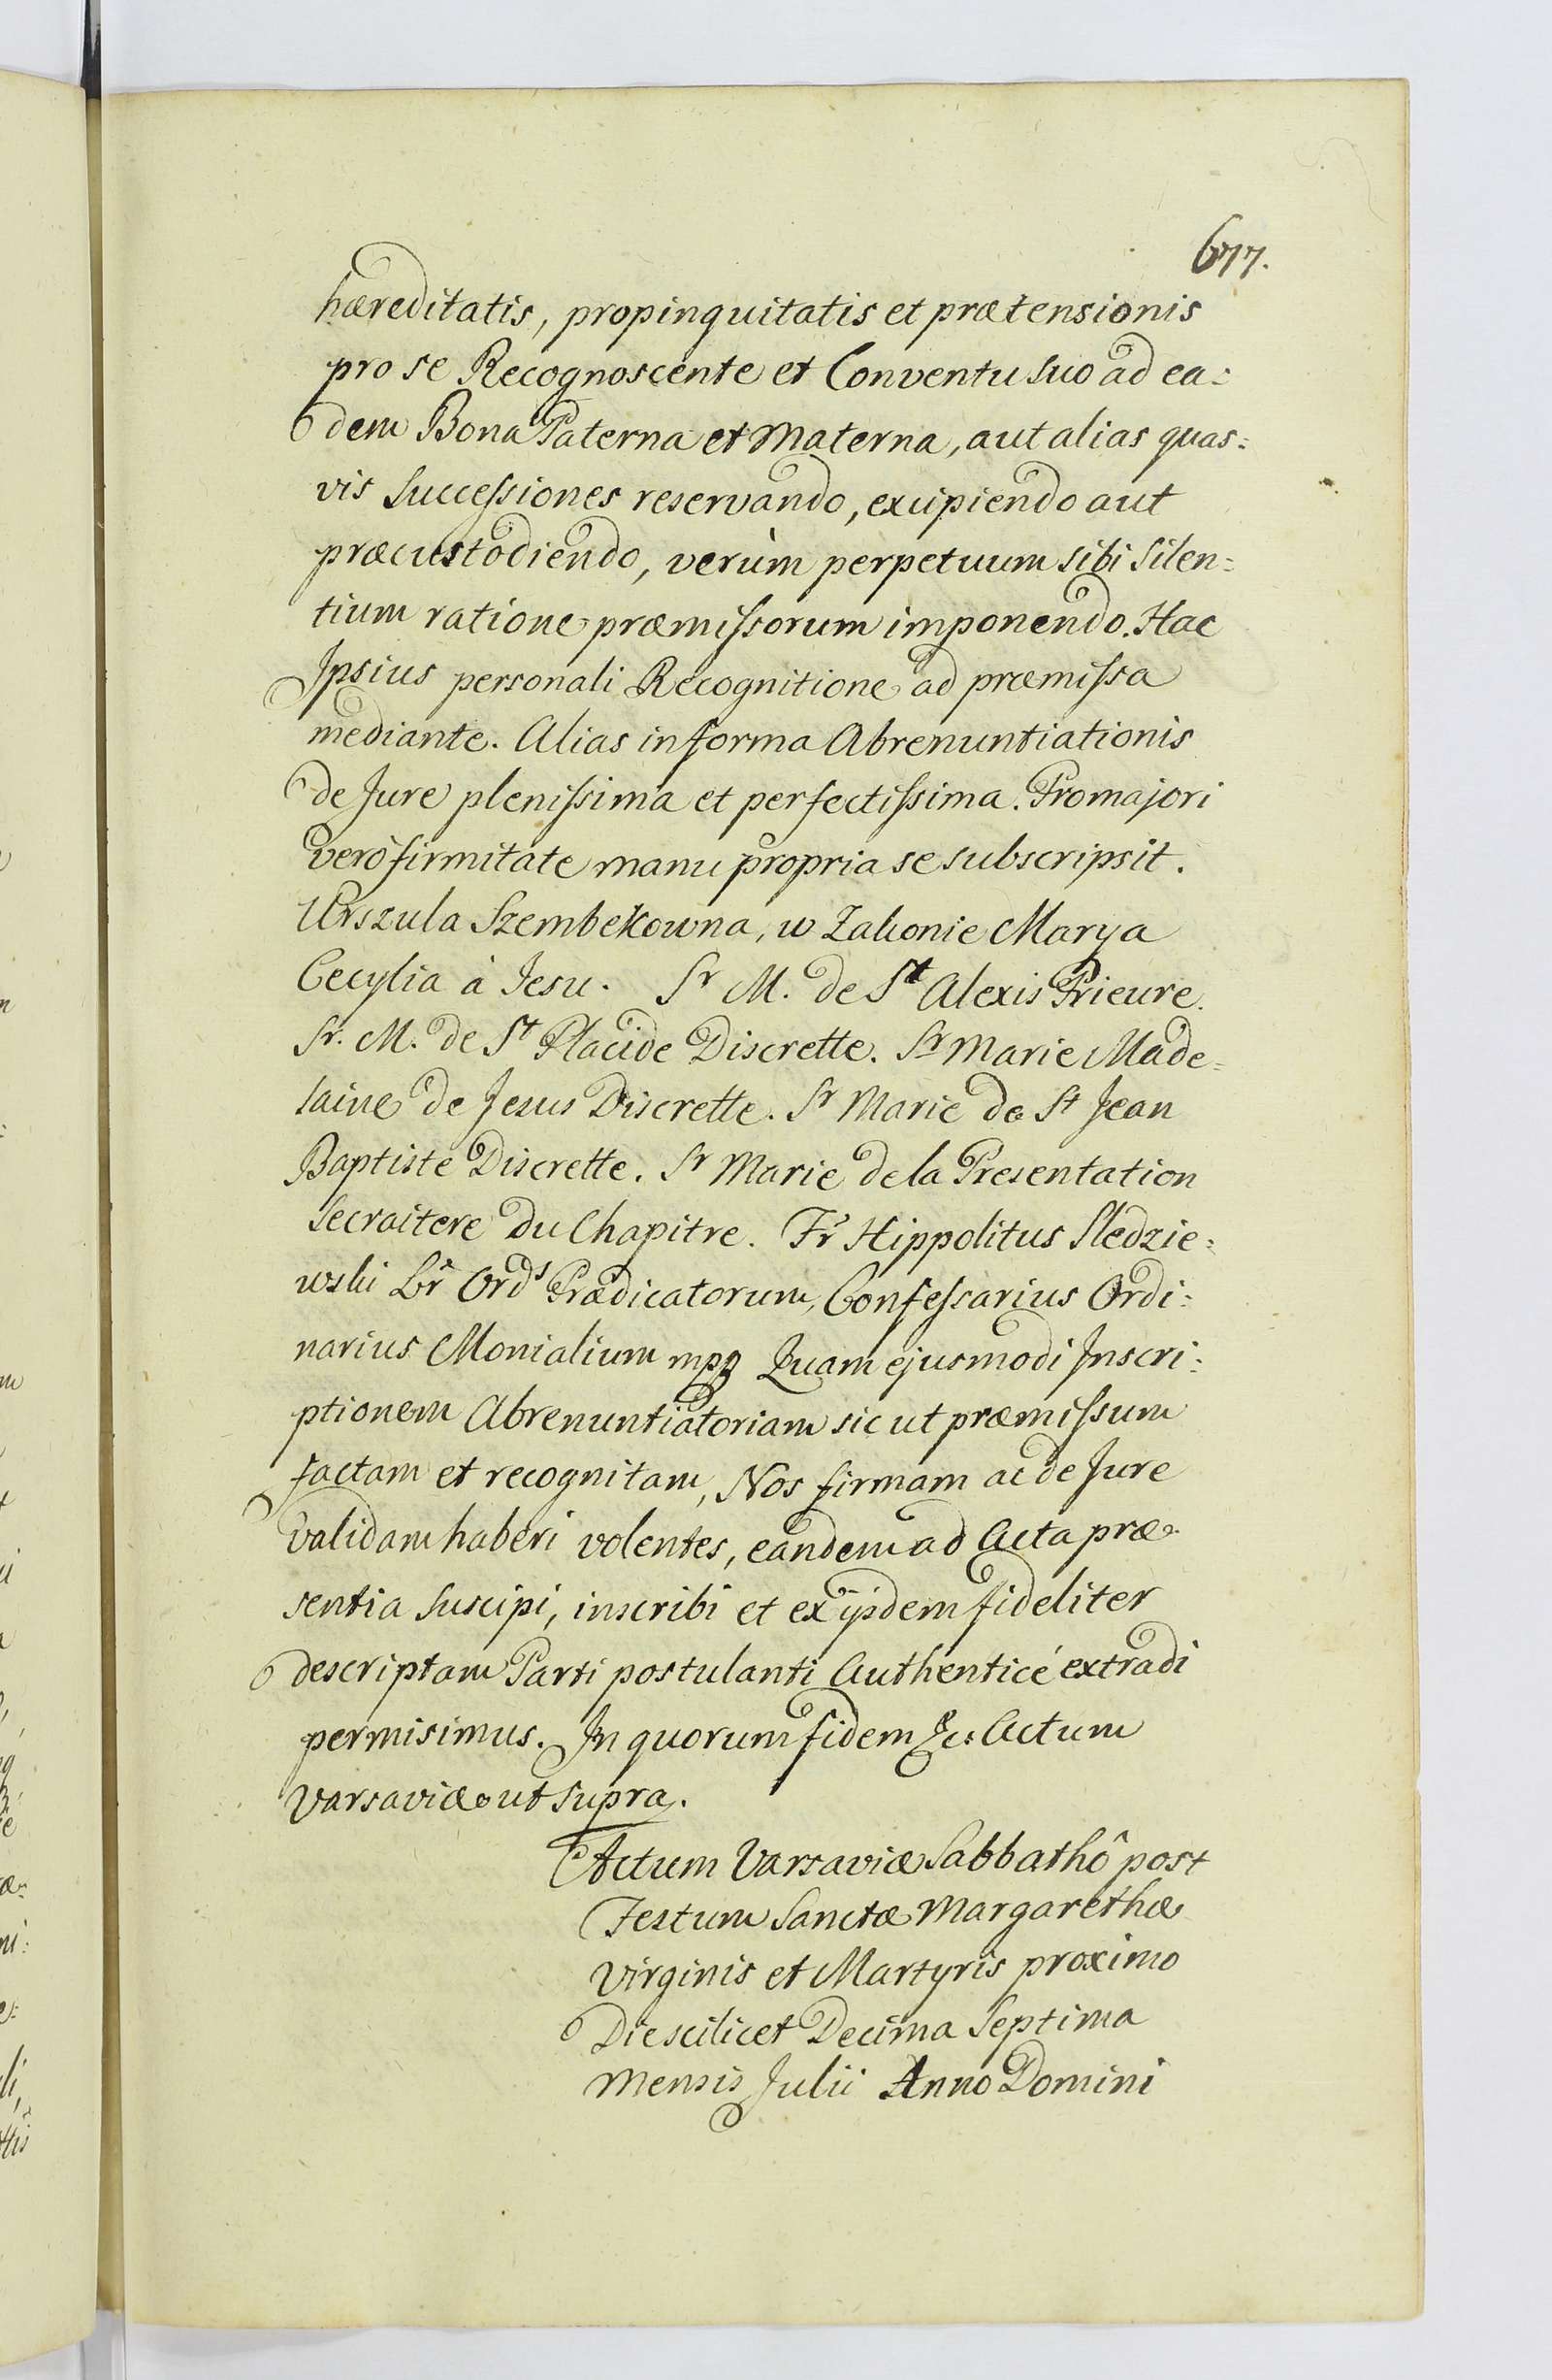 677.
hæreditatis, propinquitatis et prætensionis
pro se Recognoscente et Conventu suo ad ea:
dem Bona Paterna et Materna, aut alias quas:
vis Successiones reservando, excipiendo aut
præcustodiendo, verùm perpetuum sibi Silen:
tium ratione præmissorum imponendo. Hac
Ipsius personali Recognitione ad præmissa
mediante. Alias in forma Abrenuntiationis
de Jure plenissima et perfectissima. Pro majori
verò firmitate manu propria se subscripsit.
Urszula Szembekowna, w Zakonie Marya
Cecylia à Jesu. Sr M. de St Alexis Prieure.
Sr. M. de St Placide Discrette. Sr Marie Made:
laine de Jesus Discrette. Sr Marie de St Jean
Baptiste Discrette. Sr Marie de la Presentation
Secraitere du Chapitre. Fr Hippolitus Sledzie:
wski Lr Ords Prædicatorum, Confessarius Ordi:
narius Monialium mpp Quam ejusmodi Inscri:
ptionem Abrenuntiatoriam sic ut præmissum
factam et recognitam, Nos firmam ac de Jure
validam haberi volentes, eandem ad Acta præ:
sentia suscipi, inscribi et ex ijsdem fideliter
descriptam Parti postulanti Authenticé extradi
permisimus. In quorum fidem &c: Actum
Varsaviæ ut supra.
Actum Varsaviæ Sabbathô post
Festum Sanctæ Margarethæ
Virginis et Martyris proximo
Die scilicet Decima Septima
Mensis Julii Anno Domini